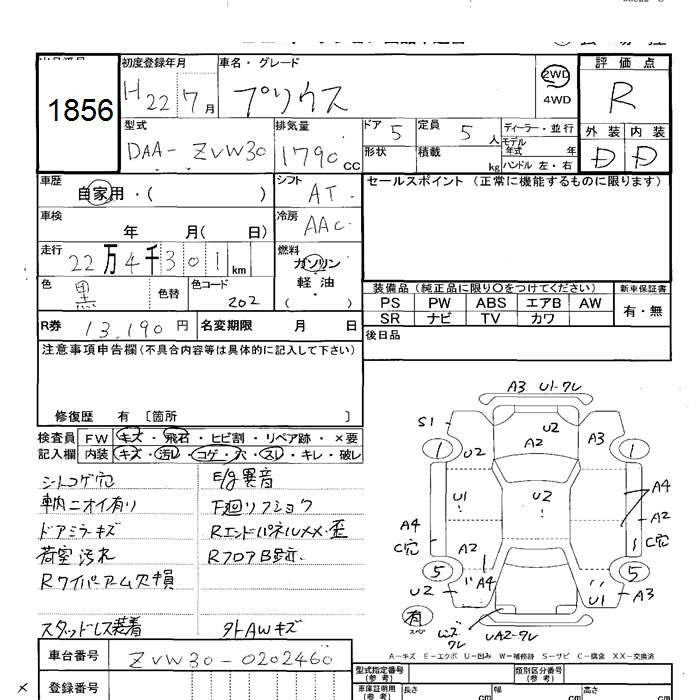 1856
初度登録年月
H22 7月
車名・グレード
プリウス
2WD
4WD
評価点
R
外装 内装
D D
型式
DAA-ZVW30
排気量
1790cc
ドア 5
定員 5人
形状
積載 kg
ディーラー・並行
モデル年式 年
ハンドル 左・右
車歴
自家用・( )
シフト
AT
セールスポイント (正常に機能するものに限ります)
車検
年 月( 日)
冷房
AAC
走行
22万4千301km
燃料
ガソリン
軽油
( )
色
黒
色替
色コード
202
装備品 (純正品に限り〇をつけてください)
新車保証書
PS PW ABS エアB AW
SR ナビ TV カワ
有・無
R券 13,190円
名変期限 月 日
後日品
注意事項申告欄(不具合内容等は具体的に記入して下さい)
修復歴 有 〔箇所 〕
検査員記入欄
FW キズ・飛石・ヒビ割・リペア跡・×要
内装 キズ・汚レ・コゲ・穴・スレ・キレ・破レ
シートコゲ穴
車内ニオイ有り
ドアミラーキズ
荷室汚れ
Rワイパーアーム欠損
スタッドレス装着
E/g異音
F廻リフショク
RエンドパネルXX・歪
RフロアB跡
外AWキズ
A3 U1-ワレ
S1
U2
A2
A3
1
1
U2
U1
U2
A4
A2
A4
C穴
C穴
A2
A4
5
5
U2
U1
A3
有
スペア
UA2-ワレ
A-キズ E-エクボ U-凹み W-補修跡 S-サビ C-腐食 XX-交換済
車台番号
ZVW30-0202460
登録番号
型式指定番号(参考)
類別区分番号(参考)
車庫証明用(参考)
長さ cm
幅 cm
高さ cm